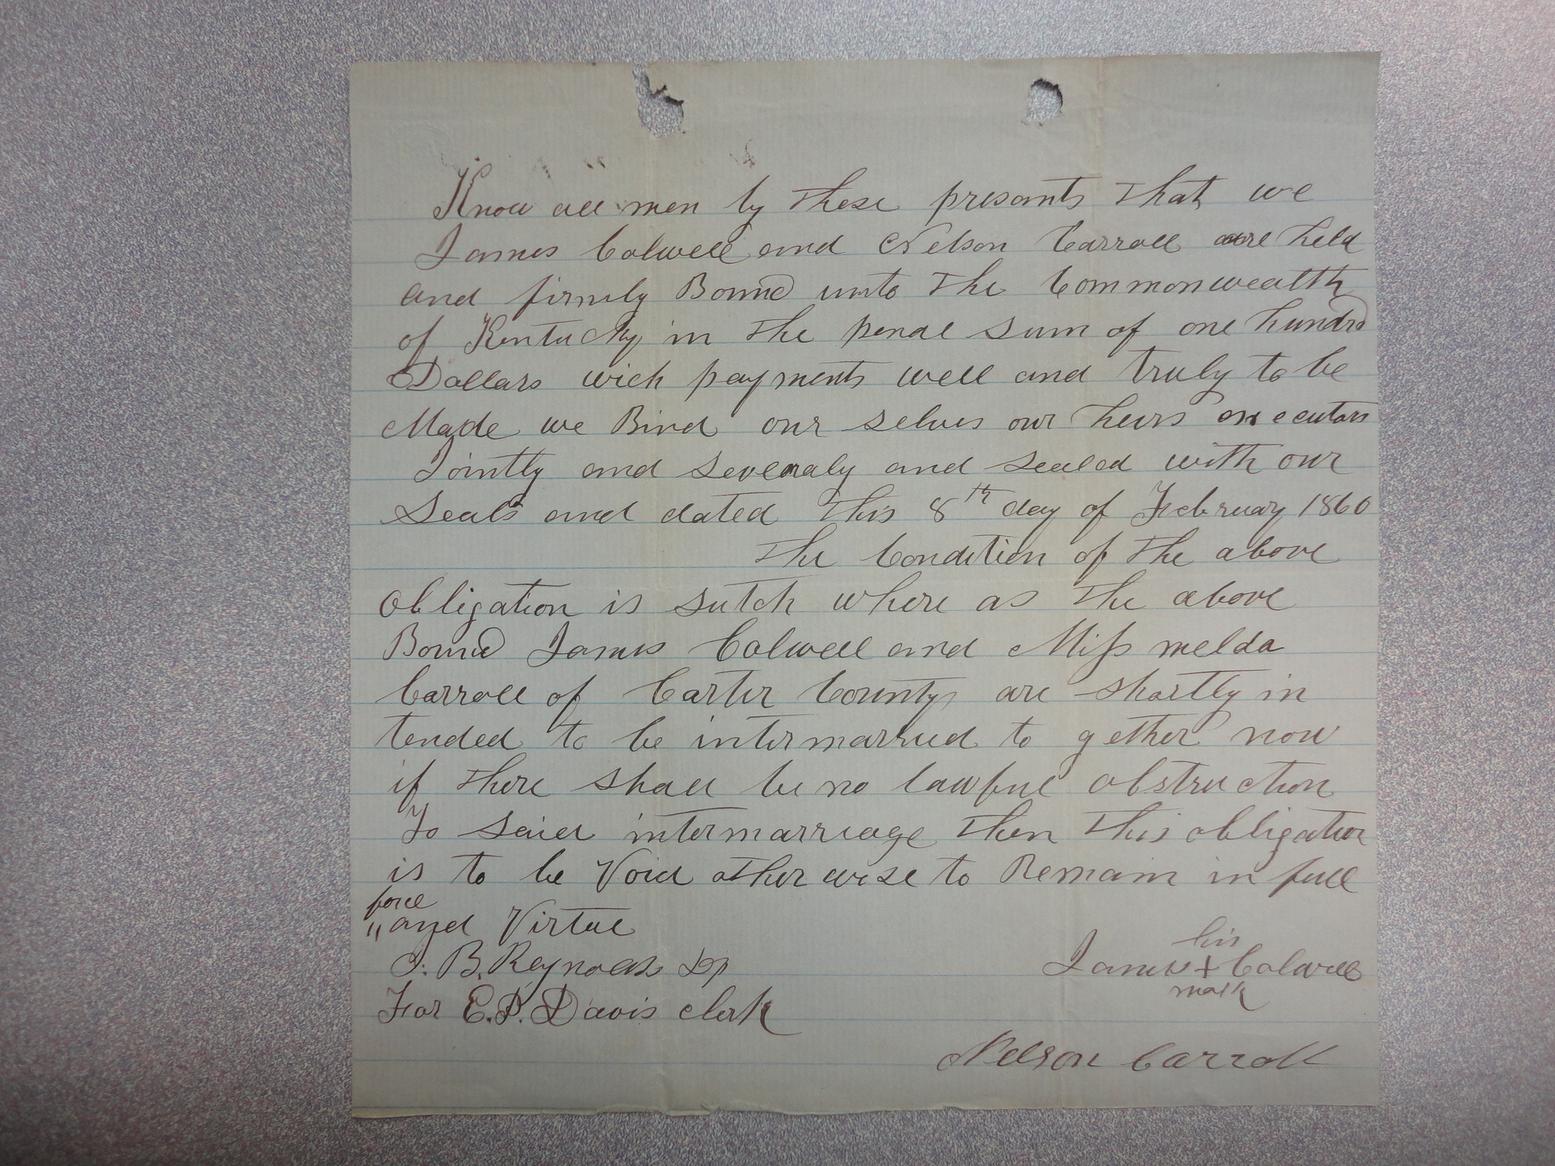 Know all men by these presants that we
James Colwell and Nelson Carroll are held
and firmly Bound unto the Commonwealth
of Kentucky in the penal sum of one hundrd
Dollars wich payments well and truly to be
Made we Bind our selves our heirs executors
Jointly and severaly and sealed with our
Seals and dated this 8th day of February 1860
The Condition of the above
obligation is sutch where as the above
Bound James Colwell and Miss melda
Carroll of Carter County are shortly in
tended to be intermarried to gether now
if there shall be no lawful obstruction
To said intermarriage then this obligation
is to be Void other wise to Remain in full
force
" and Virtue
his
J. B. Reynolds Dp James + Colwell
mark
For E.P. Davis clerk
Nelson Carroll